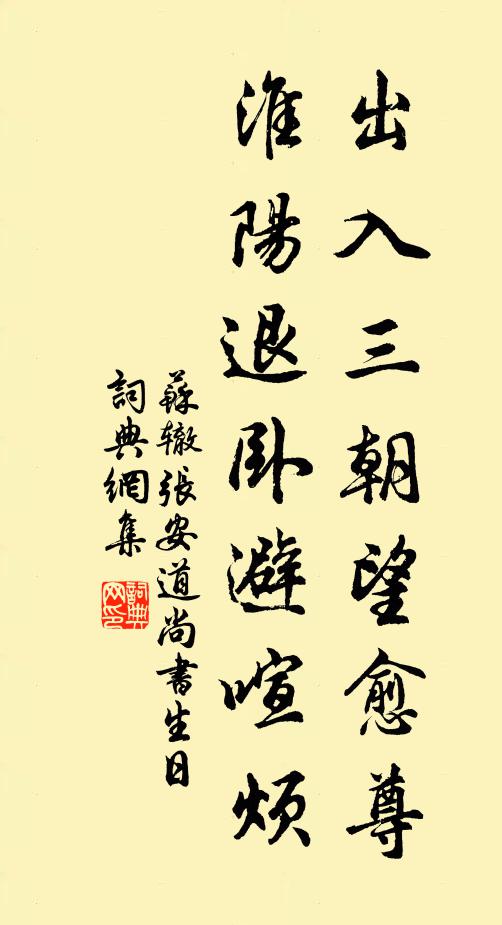 出入三朝望愈尊
淮陽退臥避喧煩
蘇轍張安道尚書生日
詞典網集
詞典網印